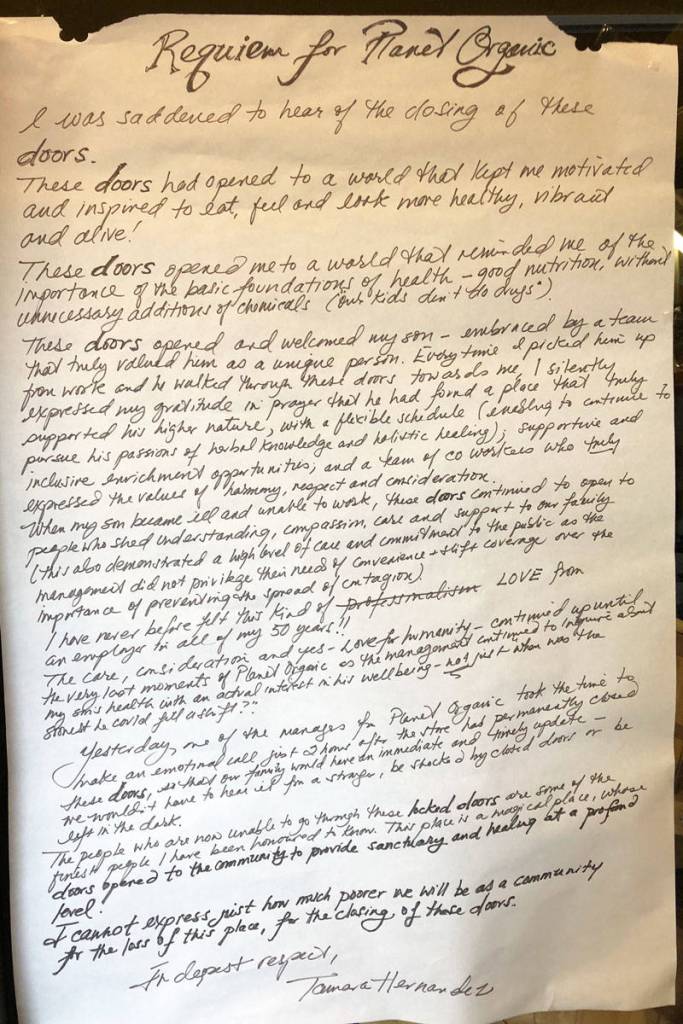 Requiem for Planet Organic
I was saddened to hear of the closing of these
doors.
These doors had opened to a world that kept me motivated
and inspired to eat, feel and look more healthy, vibrant
and alive!
These doors opened me to a world that reminded me of the
importance of the basic foundations of health - good nutrition, without
unnecessary additions of chemicals ("our kids don't do drugs").
These doors opened and welcomed my son - embraced by a team
that truly valued him as a unique person. Everytime I picked him up
from work and he walked through these doors towards me, I silently
expressed my gratitude in prayer that he had found a place that truly
supported his higher nature, with a flexible schedule (enabling to continue to
pursue his passions of herbal knowledge and holistic healing); supportive and
inclusive enrichment opportunities; and a team of co workers who truly
expressed the values of harmony, respect and consideration.
When my son became ill and unable to work, these doors continued to open to
people who shed understanding, compassion, care and support to our family
(this also demonstrated a high level of care and commitment to the public as the
management did not privilege their need of convenience + shift coverage over the
importance of preventing the spread of contagion).
I have never before felt this kind of professionalism LOVE from
an employer in all of my 50 years!!
The care, consideration and yes - Love for humanity - continued up until
the very last moments of Planet Organic as the management continued to inquire about
my son's health with an actual interest in his wellbeing - not just when was the
soonest he could fill a shift?"
Yesterday, one of the managers for Planet Organic took the time to
make an emotional call just 2 hours after the store had permanently closed
these doors, so that our family would have an immediate and timely update -
we wouldn't have to hear it from a stranger, be shocked by closed doors or be
left in the dark.
The people who are now unable to go through these locked doors are some of the
finest people I have been honoured to know. This place is a magical place, whose
doors opened to the community to provide sanctuary and healing at a profound
level.
I cannot express just how much poorer we will be as a community
for the loss of this place, for the closing of these doors.
In depest respect,
Tamara Hernandez